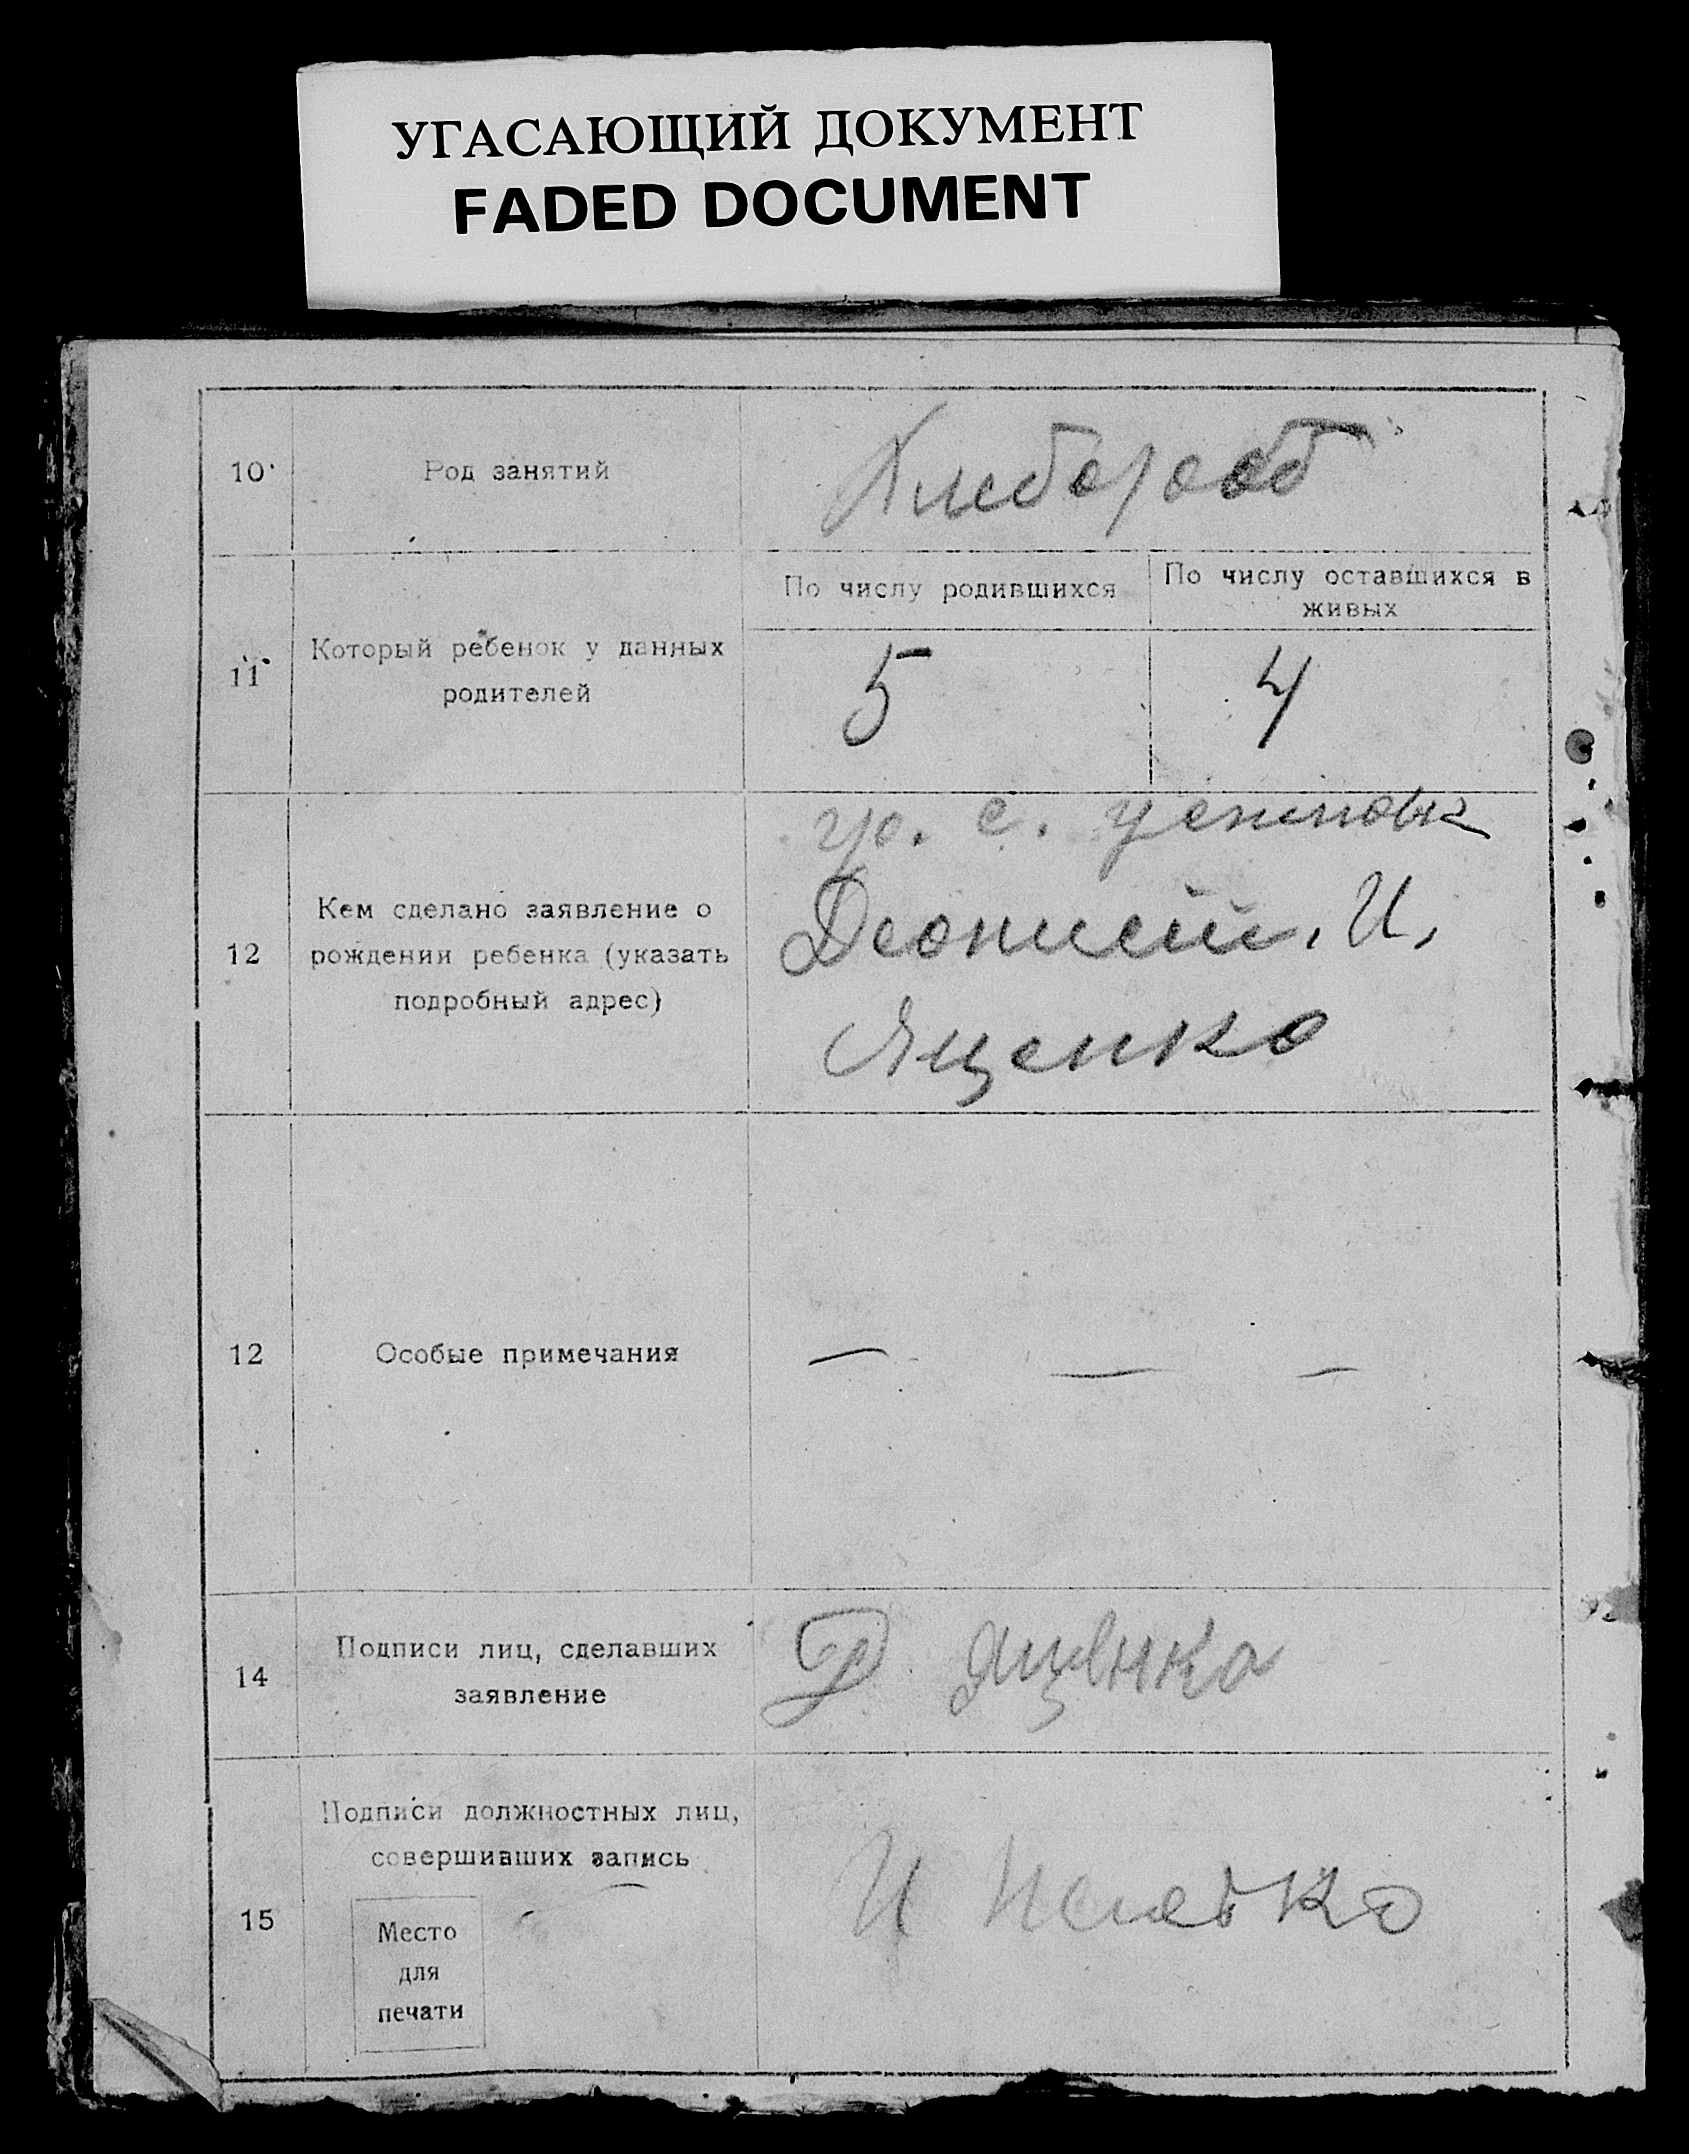 УГАСАЮЩИЙ ДОКУМЕНТ
FADED DOCUMENT
10
Род занятий
Хлебороб
11
Который ребенок у данных
родителей
По числу родившихся
По числу оставшихся в
живых
5
4
12
Кем сделано заявление о
рождении ребенка (указать
подробный адрес)
гр. с.
И.
Яценко
12
Особые примечания
— — —
14
Подписи лиц, сделавших
заявление
Яценко
15
Подписи должностных лиц,
совершивших запись
Место
для
печати
И